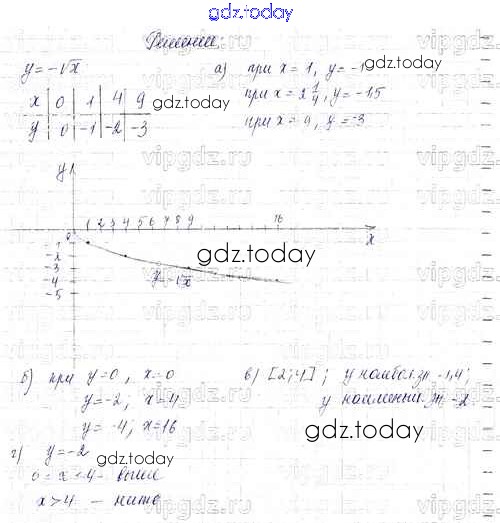 gdz.today
Решение:
y = -√x
x | 0 | 1 | 4 | 9
y | 0 | -1 | -2 | -3
а) при x = 1, y = -1
при x = 2 1/4, y = -1,5
при x = 9, y = -3
gdz.today
gdz.today
vipgdz.ru
y
1 2 3 4 5 6 7 8 9 16
x
0
-1
-2
-3
-4
-5
y = -√x
gdz.today
б) при y = 0, x = 0
y = -2; x = 4
y = -4; x = 16
в) [2; 4]; y наибол. зн -1,4;
y наименьш. зн -2
gdz.today
г) y = -2
0 ≤ x < 4 - выше
x > 4 - ниже
gdz.today